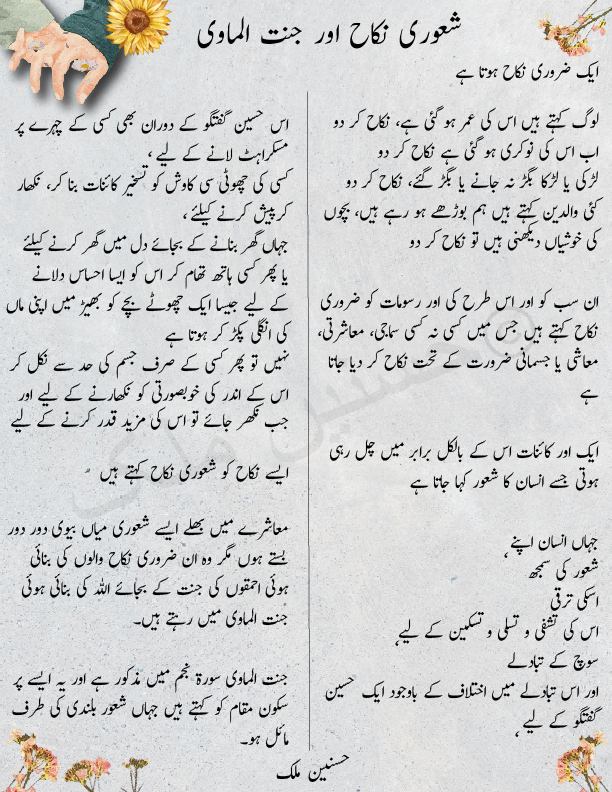 شعوری نکاح اور جنت الماوی
ایک ضروری نکاح ہوتا ہے
لوگ کہتے ہیں اس کی عمر ہو گئی ہے، نکاح کر دو
اب اس کی نوکری ہو گئی ہے نکاح کر دو
لڑکی یا لڑکا بگڑ نہ جانے یا بگڑ گئے، نکاح کر دو
کئی والدین کہتے ہیں ہم بوڑھے ہو رہے ہیں، بچوں
کی خوشیاں دیکھنی ہیں تو نکاح کر دو
ان سب کو اور اس طرح کی اور رسومات کو ضروری
نکاح کہتے ہیں جس میں کسی نہ کسی سماجی، معاشرتی،
معاشی یا جسمانی ضرورت کے تحت نکاح کر دیا جاتا
ہے
ایک اور کائنات اس کے بالکل برابر میں چل رہی
ہوتی جسے انسان کا شعور کہا جاتا ہے
جہاں انسان اپنے،
شعور کی سمجھ
اسکی ترقی
اس کی تشفی و تسلی و تسکین کے لیے،
سوچ کے تبادلے
اور اس تبادلے میں اختلاف کے باوجود ایک حسین
گفتگو کے لیے،
اس حسین گفتگو کے دوران بھی کسی کے چہرے پر
مسکراہٹ لانے کے لیے،
کسی کی چھوٹی سی کاوش کو تسخیر کائنات بنا کر، نکھار
کر پیش کرنے کیلئے،
جہاں گھر بنانے کے بجائے دل میں گھر کرنے کیلئے
یا پھر کسی ہاتھ تھام کر اس کو ایسا احساس دلانے
کے لیے جیسا ایک چھوٹے بچے کو بھیڑ میں اپنی ماں
کی انگلی پکڑ کر ہوتا ہے
نہیں تو پھر کسی کے صرف جسم کی حد سے نکل کر
اس کے اندر کی خوبصورتی کو نکھارنے کے لیے اور
جب نکھر جائے تو اس کی مزید قدر کرنے کے لیے
ایسے نکاح کو شعوری نکاح کہتے ہیں
معاشرے میں بھلے ایسے شعوری میاں بیوی دور دور
بستے ہوں مگر وہ ان ضروری نکاح والوں کی بنائی
ہوئی احمقوں کی جنت کے بجائے اللہ کی بنائی ہوئی
جنت الماوی میں رہتے ہیں۔
جنت الماوی سورۃ نجم میں مذکور ہے اور یہ ایسے پر
سکون مقام کو کہتے ہیں جہاں شعور بلندی کی طرف
مائل ہو۔
حسنین ملک